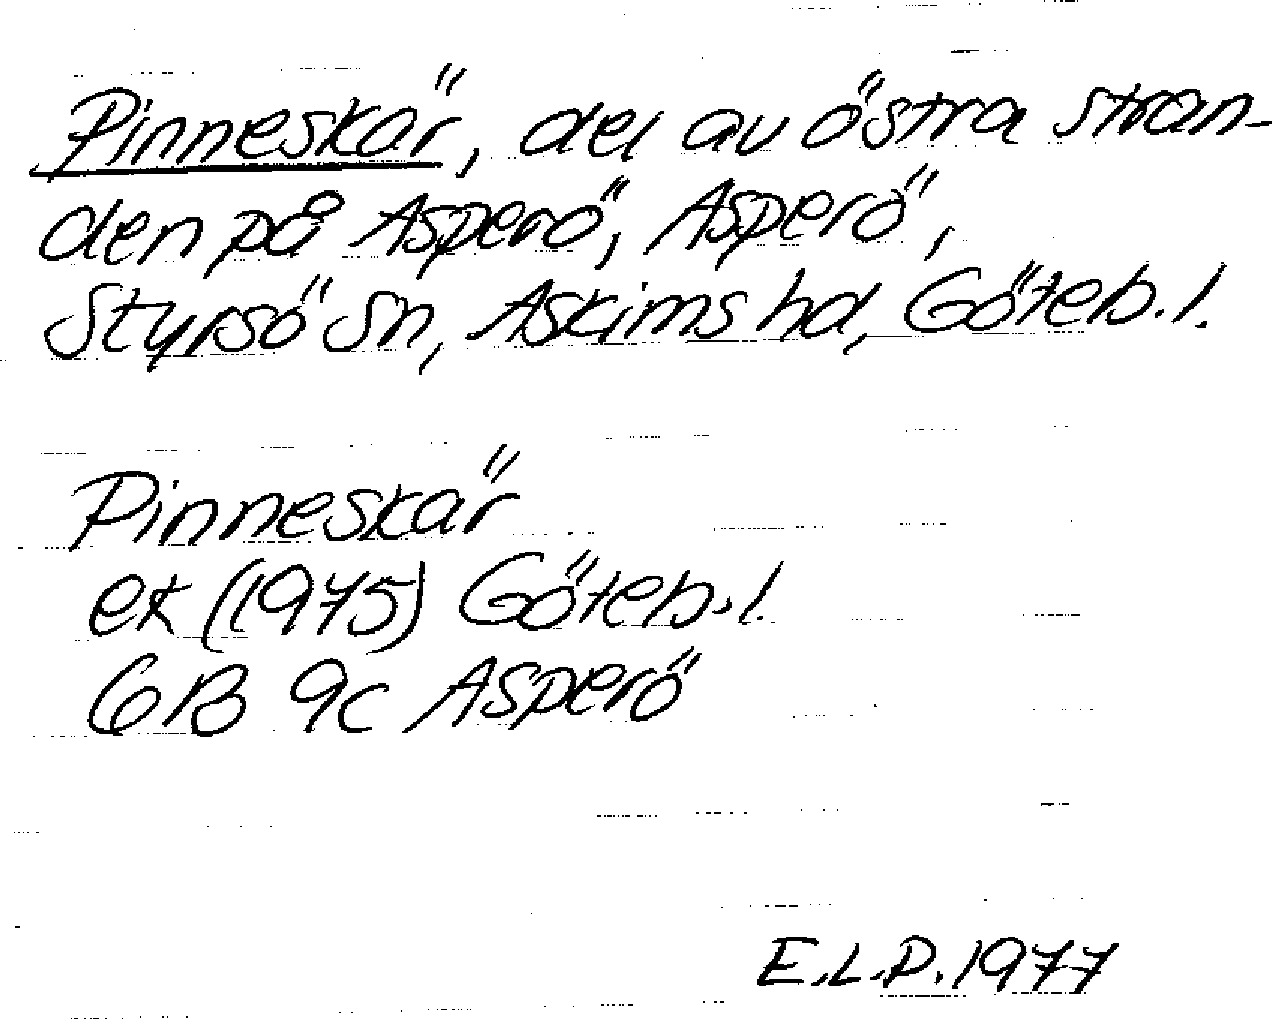 Pinneskär, del av östra stran-
den på Asperö, Asperö,
Styrsö sn, Askims hd, Göteb. l.
Pinneskär
ek (1975) Göteb. l.
6B 9c Asperö
E.L.P. 1977